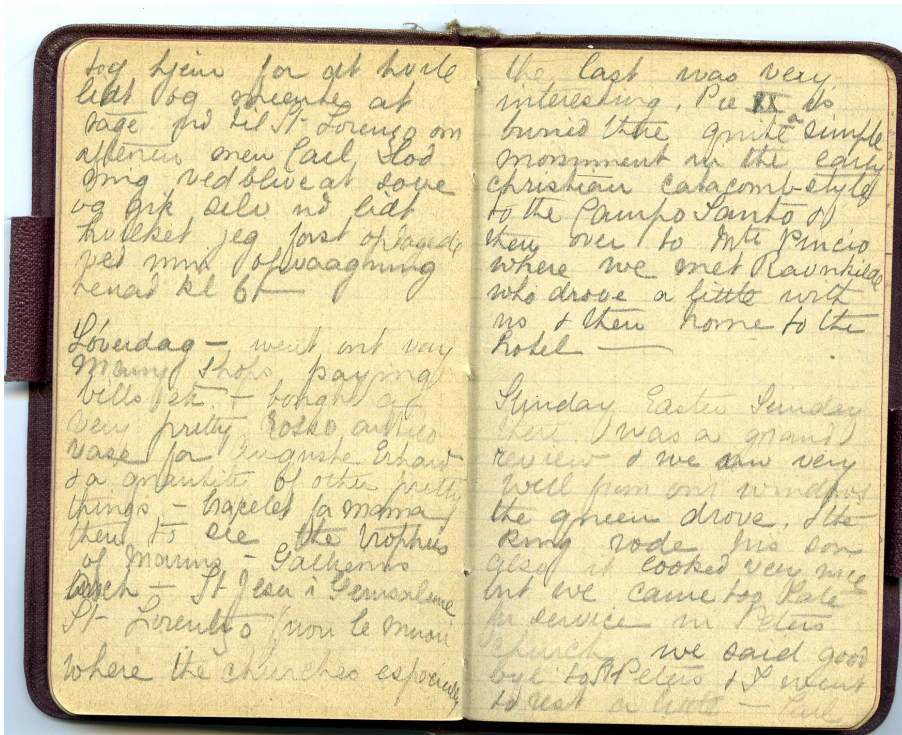 tog hjem for at hvile
lidt og meente at
tage ud til St Lorenzo om
aftenen men Carl lod
mig vedblive at sove
og gik selv ud lidt
hvilket jeg forst opdagede
ved min opvaagning
henad kl 6t —
Löverdag — went out very
Many shops paying
bills etc. — bought a
very pretty rosso antico
vase for Auguste
& a quantity of other pretty
things — bracelet for mama
then to see the Trophies
of Marius — Gallienus
Arch — St Jesu i Gerusaleme
St Lorenzo fuori le muri
where the churches especially
the last was very
interesting. Pie IX is
buried there quite a simple
monument in the early
christian catacomb-style
to the Campo Santo &
then over to Mte Pincio
where we met Ravnkilde
who drove a little with
us & then home to the
hotel —
Sunday Easter Sunday
there was a grand
review & we saw very
well from our windows
the queen drove, & the
King rode his son
also it looked very nice
but we came too late
for service in Peters
church, we said good
bye to St Peters & I went
to rest a little — Carl